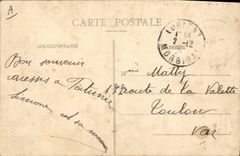 A
CARTE POSTALE
CORRESPONDANCE
ADRESSE
LORIENT
2-12
MORBIHAN
Bon souvenir
caresses à Fortunée
Simone et sa maman
Mme Matty
Route de la Valette
Toulon
Var